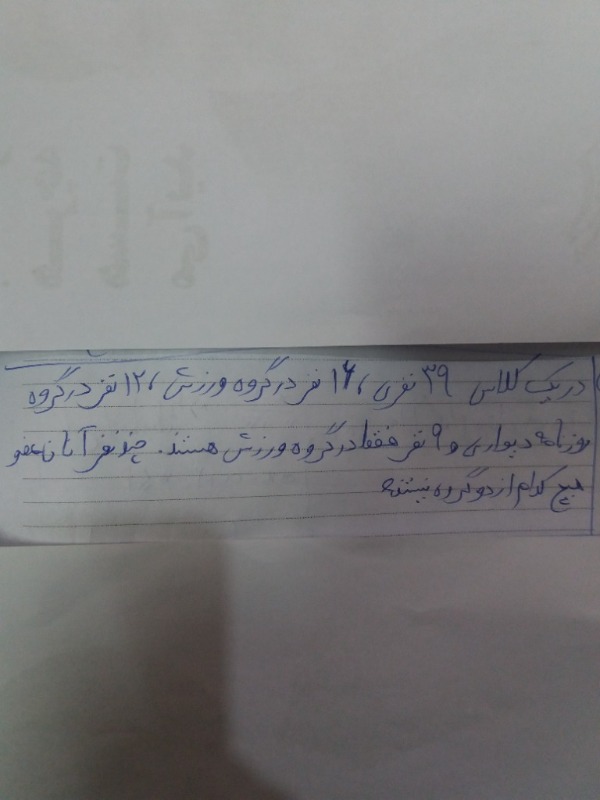 در یک کلاس ۳۹ نفری ، ۱۶ نفر در گروه ورزش ، ۱۲ نفر در گروه
روزنامه دیواری و ۹ نفر فقط در گروه ورزش هستند. چند نفر آنان عضو
هیچ کدام از دو گروه نیستند؟